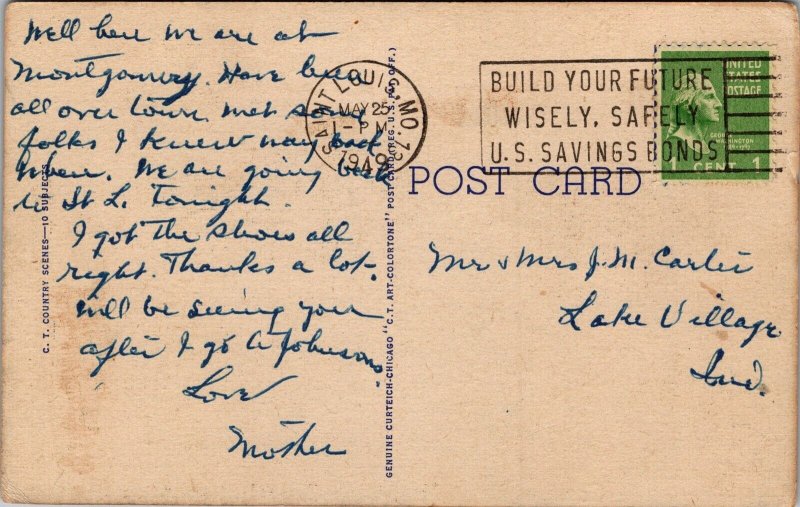 Well here we are at
Montgomery. Have been
all over town. met some
folks I knew way back
when. We are going back
to St L. Tonight.
I got the shoes all
right. Thanks a lot.
will be seeing you
after I go to Johnsons
Love
Mother
C. T. COUNTRY SCENES—10 SUBJECTS
GENUINE CURTEICH-CHICAGO "C.T. ART-COLORTONE" POST CARD (REG. U.S. PAT. OFF.)
SAINT LOUIS, MO. 13
MAY 25
1-PM
1949
BUILD YOUR FUTURE
WISELY, SAFELY
U.S. SAVINGS BONDS
UNITED
STATES
POSTAGE
GEORGE
WASHINGTON
1 CENT 1
POST CARD
Mr & Mrs J. M. Carter
Lake Village
Ind.